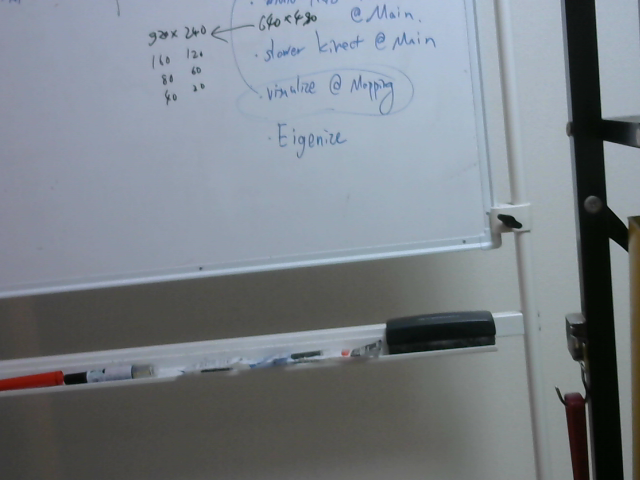 640×480 @Main.
320×240
160 120
80 60
40 30
· slower kinect @ Main
· visualize @ Mapping
· Eigenize